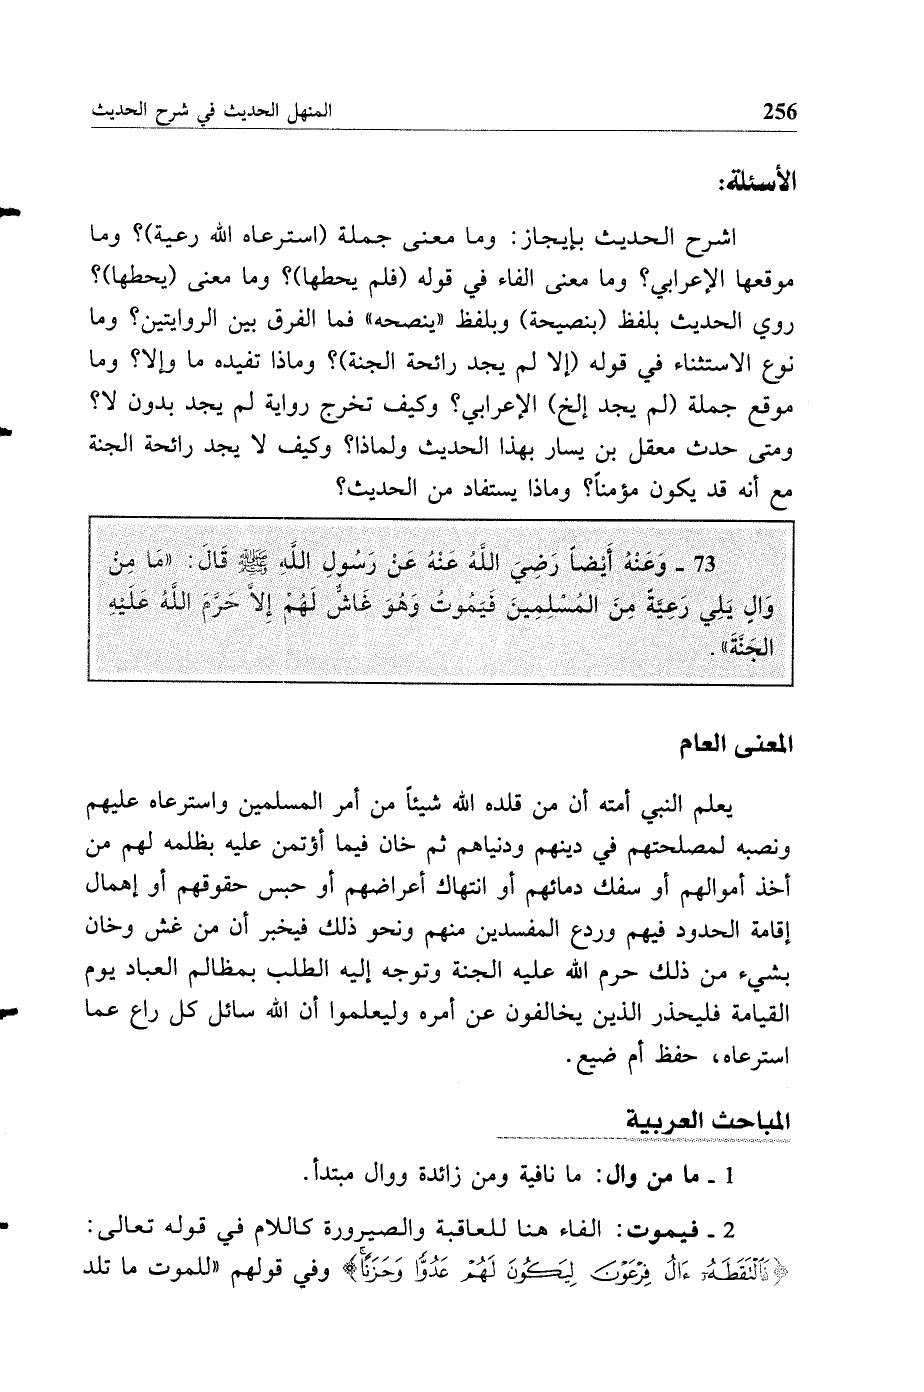 256 المنهل الحديث في شرح الحديث
الأسئلة:
اشرح الحديث بإيجاز: وما معنى جملة (استرعاه الله رعية)؟ وما
موقعها الإعرابي؟ وما معنى الفاء في قوله (فلم يحطها)؟ وما معنى (يحطها)؟
روي الحديث بلفظ (بنصيحة) وبلفظ «ينصحه» فما الفرق بين الروايتين؟ وما
نوع الاستثناء في قوله (إلا لم يجد رائحة الجنة)؟ وماذا تفيده ما وإلا؟ وما
موقع جملة (لم يجد إلخ) الإعرابي؟ وكيف تخرج رواية لم يجد بدون لا؟
ومتى حدث معقل بن يسار بهذا الحديث ولماذا؟ وكيف لا يجد رائحة الجنة
مع أنه قد يكون مؤمناً؟ وماذا يستفاد من الحديث؟
73 ـ وَعَنْهُ أَيْضاً رَضِيَ اللَّهُ عَنْهُ عَنْ رَسُولِ اللَّهِ ﷺ قَالَ: «مَا مِنْ
وَالٍ يَلِي رَعِيَّةً مِنَ المُسْلِمِينَ فَيَمُوتُ وَهُوَ غَاشٌّ لَهُمْ إِلاَّ حَرَّمَ اللَّهُ عَلَيْهِ
الجَنَّةَ».
المعنى العام
يعلم النبي أمته أن من قلده الله شيئاً من أمر المسلمين واسترعاه عليهم
ونصبه لمصلحتهم في دينهم ودنياهم ثم خان فيما أؤتمن عليه بظلمه لهم من
أخذ أموالهم أو سفك دمائهم أو انتهاك أعراضهم أو حبس حقوقهم أو إهمال
إقامة الحدود فيهم وردع المفسدين منهم ونحو ذلك فيخبر أن من غش وخان
بشيء من ذلك حرم الله عليه الجنة وتوجه إليه الطلب بمظالم العباد يوم
القيامة فليحذر الذين يخالفون عن أمره وليعلموا أن الله سائل كل راع عما
استرعاه، حفظ أم ضيع.
المباحث العربية
1 ـ ما من وال: ما نافية ومن زائدة ووال مبتدأ.
2 ـ فيموت: الفاء هنا للعاقبة والصيرورة كاللام في قوله تعالى:
﴿فَالْتَقَطَهُۥ ءَالُ فِرْعَوْنَ لِيَكُونَ لَهُمْ عَدُوًّا وَحَزَنًا﴾ وفي قولهم «للموت ما تلد